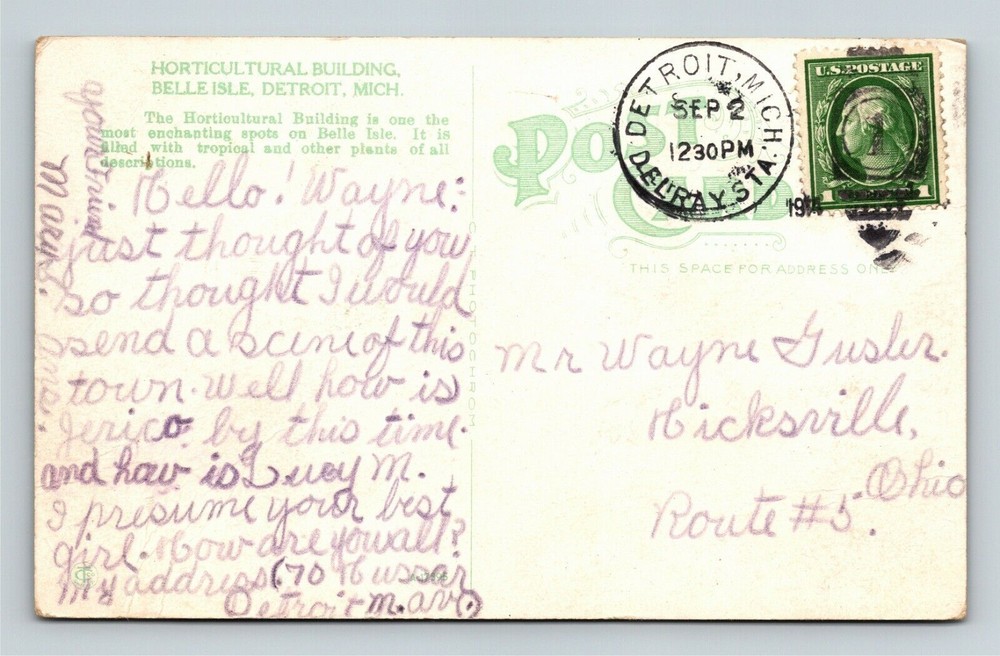 HORTICULTURAL BUILDING,
BELLE ISLE, DETROIT, MICH.
The Horticultural Building is one the
most enchanting spots on Belle Isle. It is
filled with tropical and other plants of all
descriptions.
Hello! Wayne:
just thought of you
so thought I would
send a scene of this
town. Well how is
Jerico by this time.
and how is Lucy M.
I presume your best
girl. How are you all?
My address (70 Hussar
Detroit M. ave.)
your friend
Mary
POST CARD
THIS SPACE FOR ADDRESS ONLY
DETROIT, MICH.
SEP 2
12 30 PM
DELRAY STA.
U.S. POSTAGE
1
Mr Wayne Gusler.
Hicksville,
Ohio
Route #5.